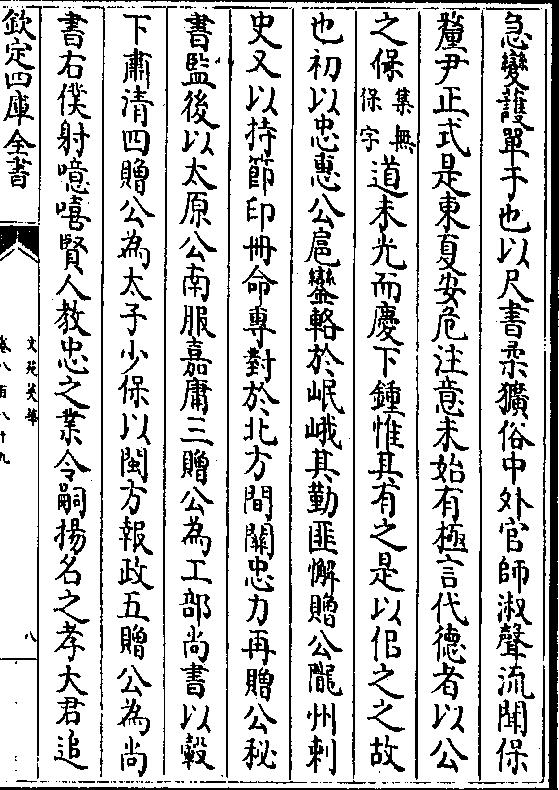 急變護單于也以尺書柔獷俗中外官師淑聲流聞保
釐尹正式是東夏安危注意未始有極言代德者以公
之保集無保字道未光而慶下鍾惟其有之是以佀之之故
也初以忠惠公扈鑾輅於岷峨其勤匪懈贈公隴州刺
史又以持節印冊命專對於北方間關忠力再贈公秘
書監後以太原公南服嘉庸三贈公為工部尚書以轂
下肅清四贈公為太子少保以閩方報政五贈公為尚
書右僕射噫嘻賢人教忠之業令嗣揚名之孝大君追
欽定四庫全書
文苑英華
卷八百八十九
八